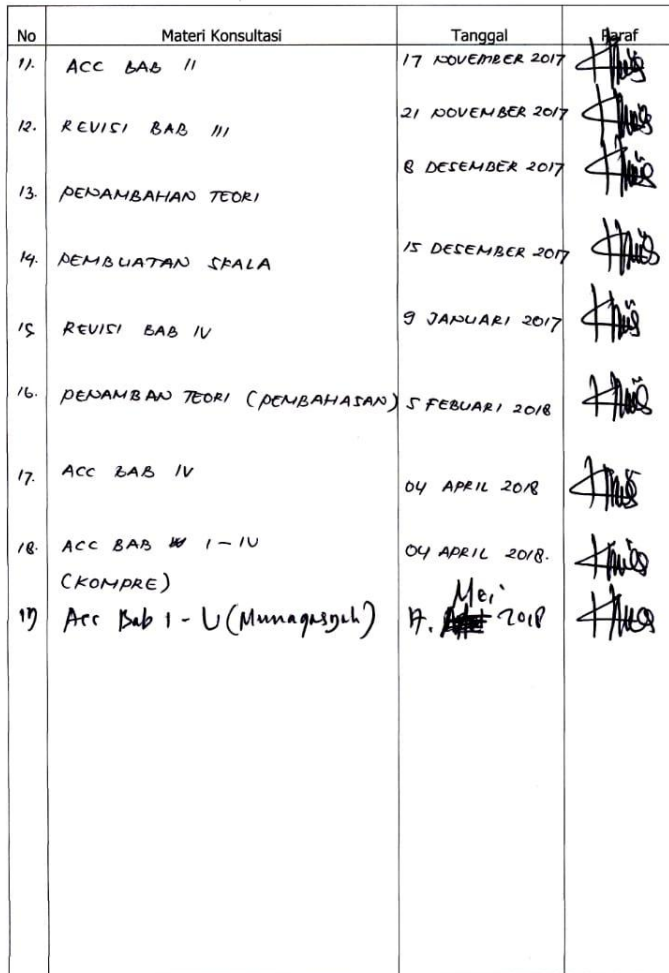 No Materi Konsultasi Tanggal Paraf
11. ACC BAB II 17 NOVEMBER 2017
12. REVISI BAB III 21 NOVEMBER 2017
13. PENAMBAHAN TEORI 8 DESEMBER 2017
14. PEMBUATAN SKALA 15 DESEMBER 2017
15 REVISI BAB IV 9 JANUARI 2017
16. PENAMBAN TEORI (PEMBAHASAN) 5 FEBUARI 2018
17. ACC BAB IV 04 APRIL 2018
18. ACC BAB I - IV 04 APRIL 2018.
(KOMPRE)
Mei
19 Acc Bab I - V (Munaqasyah) 17. 2018